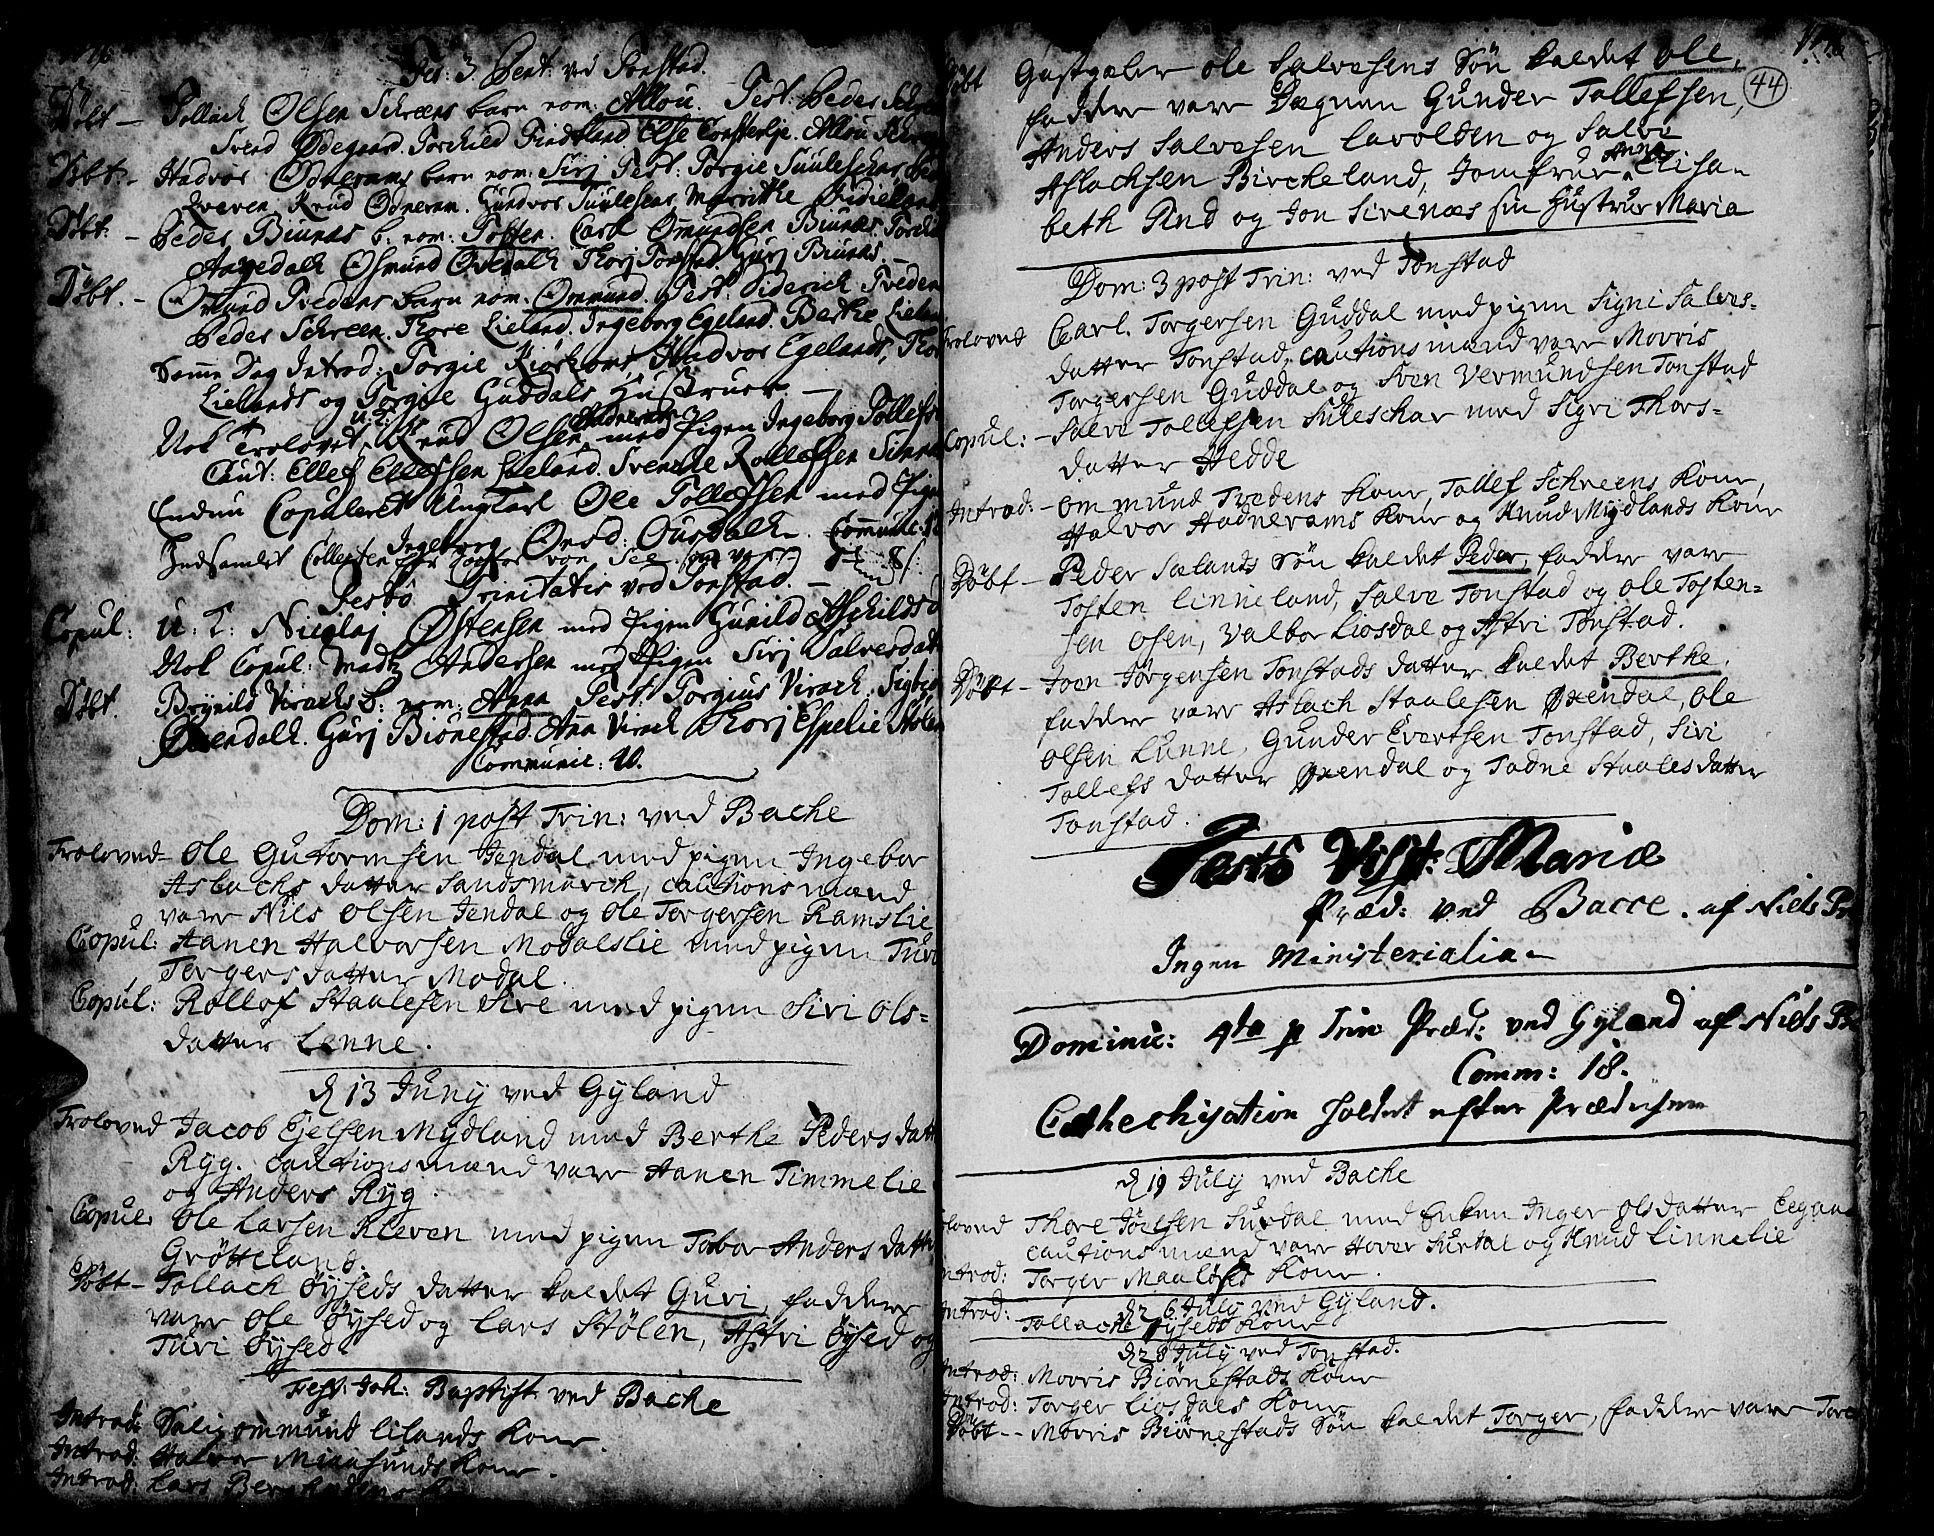 Fer: 3. Pent: ved Tonstad.
Döbt – Tollach Olsen Schreens barn nom: Allou. Test: Peder Schreen
Svend Ödegaard. Torchild Findland Else Allou
Döbt. – Hadvor Ödnerams barn nom: Sirj Test: Torgie Suuleschar
Qveven. Knud Ödneram. Gundvor Suulesens Marrithe
Döbt: – Peder Biunes b. nom: Tosten. Carl Omundsen Biunes.
Aamedalh Osmund Ovedalh Thorj Tonstad Gurj Biunes.
Döbt. – Omund Tvedens barn nom: Ommund. Test: Diderich Tveden
Peder Schreen. Thore Lieland. Ingeborg Egeland. Berthe Lieland
Samme Dag Introd: Torgie Hadvor Egelands,
Lielands og Torgie Guddals Hustruer. –
Nok Trolovet u. k: Knud Olsen Hadneram med Pigen Ingeborg Tollefs
Caut: Ellef Ellefsen Lieland. Svenche Rollefsen
Endnu Copuleret Ungkarl Ole Tollefsen med Pigen
Ingeborg Ons d: Ousdalh. Commun:
Indsamlet Collecten
Festo Trinitatis ved Tonstad. –
Copul: U: K: Nicolaj Östensen med Pigen Gunild Aschilds d
Nok Copul: Madtz Andersen med Pigen Sirj Salvesdatt
Döbt. Brynild Virachs b: nom: Anna Test: Torgius Virach.
Öxendalh. Gurj Biönestad. Ana Virach Thorj Espelie
Communic: 40.
Dom: 1 post Trin: ved Bache
Troloved – Ole Gutormsen Jendal med pigen Ingebor
Aslachs datter Sandsmarch, cautionsmænd
vare Nils Olsen Jendal og Ole Torgersen Ramslie
Copul: Aanen Halvorsen Modalslie med pigen Turi
Torgersdatter Modal.
Copul: Rollof Staalesen Sire med pigen Siri Ols=
datter Lenne.
d 13 Juny ved Gyland
Troloved Jacob Ejelsen Mydland med Berthe Pedersdatt
Ryg. cautionsmænd vare Aanen Timmelie
og Anders Ryg.
Copul: Ole Larsen Kleven med pigen Tobor Andersdatt
Grötteland.
Döbt – Tollach Öyseds datter kaldet Guri, faddere
vare Ole Öysed og Lars Stölen, Astri Öysed og
Turi Öysed.
Fest: Joh: Baptist ved Bache
Introd: Salig ommund Lilands Kone.
Introd: Halvor Miaasunds Kone.
Introd: Lars
44
Döbt Gastgæber Ole Salvesens Sön kaldet Ole,
faddere vare Dægnen Gunder Tollefsen,
Anders Salvesen Lavolden og Salve
Aslachsen Bircheland, Jomfrue Anna Elisa-
beth Pind og Jon Sirenæs sin Hustrue Maria
Dom: 3 post Trin: ved Tonstad
Troloved Carl. Torgersen Guddal med pigen Signi Salves=
datter Tonstad, cautionsmænd vare Morris
Torgersen Guddal og Sven Vermundsen Tonstad
Copul: – Salve Tollefsen Suleschar med Sigri Thors=
datter Hedde
Introd: – Ommund Tvedens Kone, Tollef Schreens Kone,
Halvor Hadnerams Kone og Knud Mydlands Kone
Döbt – Peder Sælands Sön kaldet Peder, faddere vare
Tosten Linneland, Salve Tonstad og Ole Tosten=
sen Osen, Valbor Liosdal og Astri Tonstad.
Döbt – Joen Jörgensen Tonstads datter kaldet Berthe.
faddere vare Aslach Staalesen Öxendal, Ole
Olsen Lunne, Gunder Evertsen Tonstad, Siri
Tollefs datter Öxendal og Tadne Staalesdatter
Tonstad.
Festo Visit: Mariæ
Præd: ved Bacce. af Niels Pr
Ingen Ministerialia –
Dominic: 4ta p Trin Præd: ved Gyland af Niels Pr
Comm: 18.
Cathechisation holdet efter Prædichen
d 19 July ved Bache
Troloved Thore Joelsen Surdal med Enken Inger Olsdatter
cautionsmænd vare Hover Surdal og Knud Linnelie
Introd: Torger Maaløes Kone.
d 26 July ved Gyland.
Introd: Tollach Öyseds Kone
d 28 July ved Tonstad.
Introd: Morris Biörnestads Kone
Introd: Torger Liosdals Kone
Döbt – – Morris Biörnestads Sön kaldet Torger, faddere vare